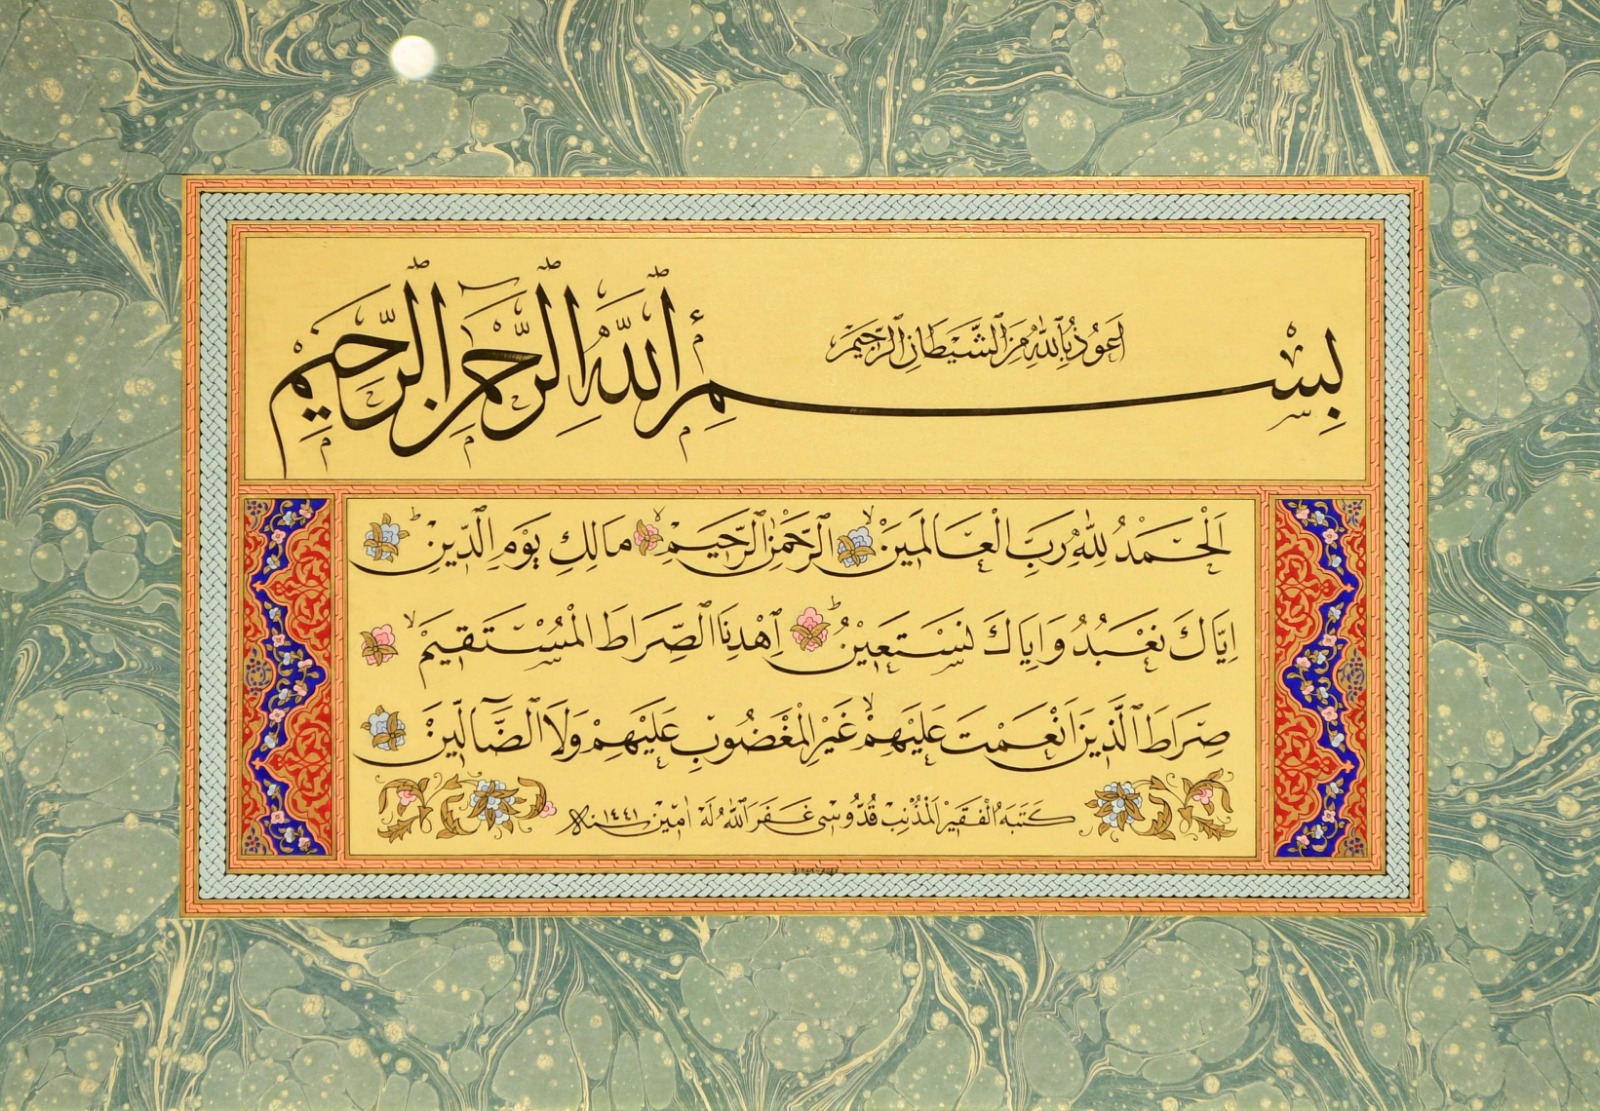 اَعُوذُ بِاللّٰهِ مِنَ الشَّيْطَانِ الرَّجِيمِ
بِسْمِ اللّٰهِ الرَّحْمٰنِ الرَّحِيمِ
اَلْحَمْدُ لِلّٰهِ رَبِّ الْعَالَمِينَ الرَّحْمٰنِ الرَّحِيمِ مَالِكِ يَوْمِ الدِّينِ
اِيَّاكَ نَعْبُدُ وَاِيَّاكَ نَسْتَعِينُ اِهْدِنَا الصِّرَاطَ الْمُسْتَقِيمَ
صِرَاطَ الَّذِينَ اَنْعَمْتَ عَلَيْهِمْ غَيْرِ الْمَغْضُوبِ عَلَيْهِمْ وَلَا الضَّٓالِّينَ
كَتَبَهُ الْفَقِيرُ الْمُذْنِبُ قُدُّوسِى غَفَرَ اللّٰهُ لَهُ اٰمِينْ سنة ١٤٤١